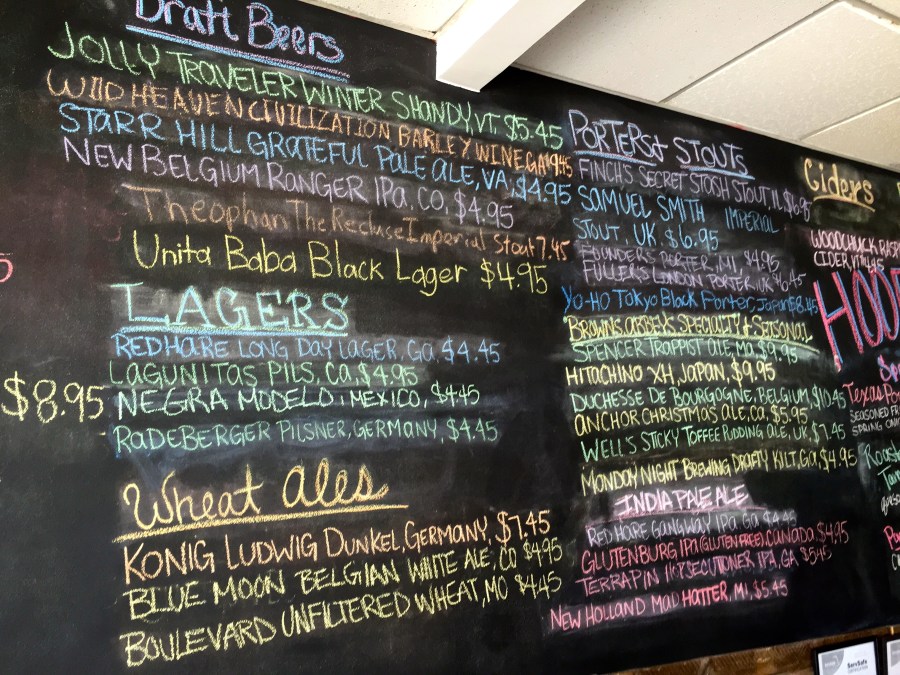 Draft Beers
JOLLY TRAVELER WINTER SHANDY, VT. $5.45
WILD HEAVEN CIVILIZATION BARLEY WINE, GA 9.45
STARR HILL GRATEFUL PALE ALE, VA, $4.95
NEW BELGIUM RANGER IPA, CO, $4.95
Theophan The Recluse Imperial Stout 7.45
Unita Baba Black Lager $4.95
LAGERS
RED HARE LONG DAY LAGER, GA, $4.45
LAGUNITAS PILS, CA, $4.95
NEGRA MODELO, MEXICO, $4.45
RADEBERGER PILSNER, GERMANY, $4.45
$8.95
Wheat Ales
KONIG LUDWIG DUNKEL, GERMANY, $7.45
BLUE MOON BELGIAN WHITE ALE, CO $4.95
BOULEVARD UNFILTERED WHEAT, MO $4.45
PORTERS & STOUTS
FINCH'S SECRET STASH STOUT, IL $6.95
SAMUEL SMITH IMPERIAL
STOUT, UK. $6.95
FOUNDERS PORTER, MI, $4.95
FULLER'S LONDON PORTER, UK 6.45
YO-HO TOKYO BLACK PORTER, JAPAN $8.45
BROWNS, ABBEYS, SPECIALTY & SEASONAL
SPENCER TRAPPIST ALE, MA, $9.95
HITACHINO XH, JAPAN, $9.95
DUCHESSE DE BOURGOGNE, BELGIUM, $10.45
ANCHOR CHRISTMAS ALE, CA, $5.95
WELL'S STICKY TOFFEE PUDDING ALE, UK, $7.45
MONDAY NIGHT BREWING DRAFTY KILT, GA, $4.95
INDIA PALE ALE
RED HARE GANGWAY IPA, GA $4.45
GLUTENBURG IPA (GLUTEN FREE), CANADA $4.95
TERRAPIN HOPSECUTIONER IPA, GA $5.45
NEW HOLLAND MAD HATTER, MI, $5.45
Ciders
WOODCHUCK RASP
CIDER, VT 4.95
HOO
Texas Po
SEASONED FR
SPRING ONI
Roaste
ServSafe